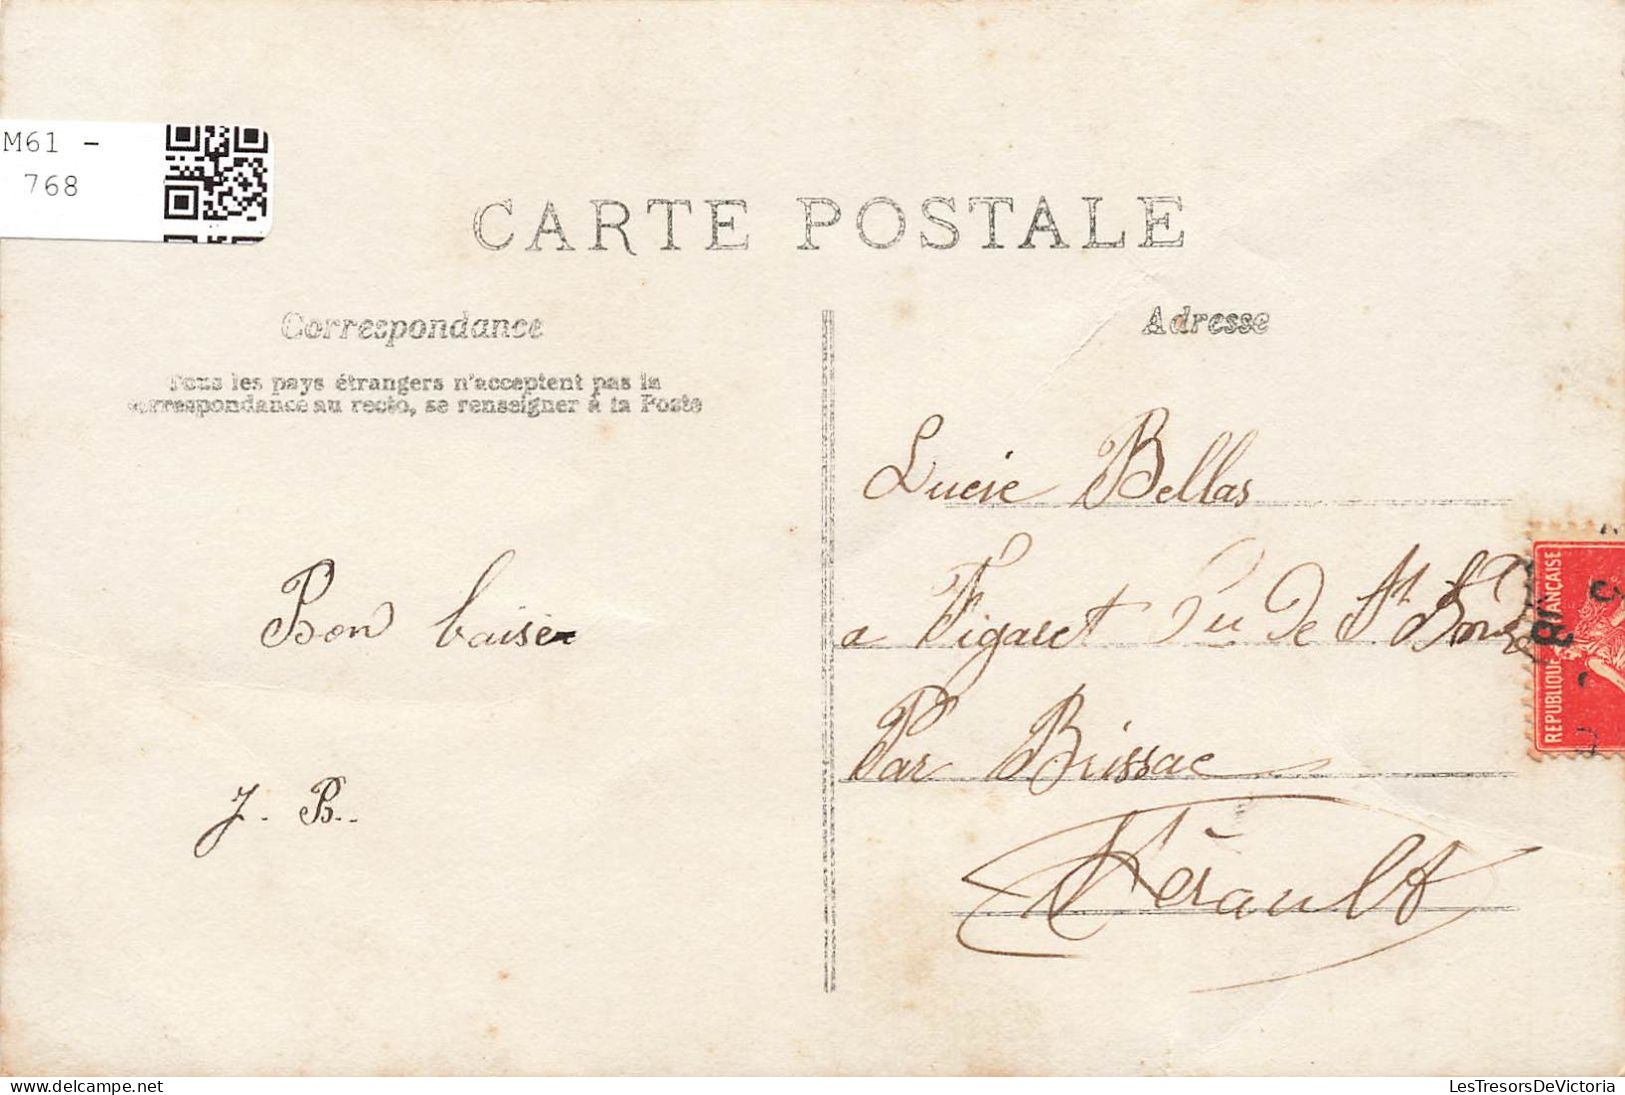 M61 -
768
CARTE POSTALE
Correspondance
Tous les pays étrangers n'acceptent pas la
correspondance au recto, se renseigner à la Poste
Bon baiser
J. B..
Adresse
Lucie Bellas
a Figaret de St
Par Brissac
Hérault
REPUBLIQUE FRANÇAISE
LesTresorsDeVictoria